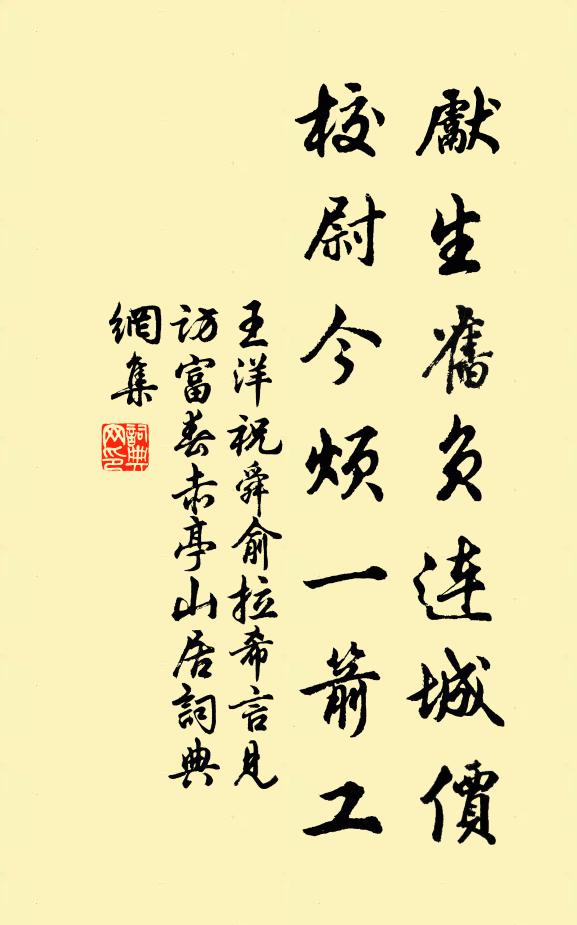 獻生舊負連城價
校尉今煩一箭工
王洋祝舜俞拉希言見
訪富春赤亭山居詞典
網集
詞典
网印